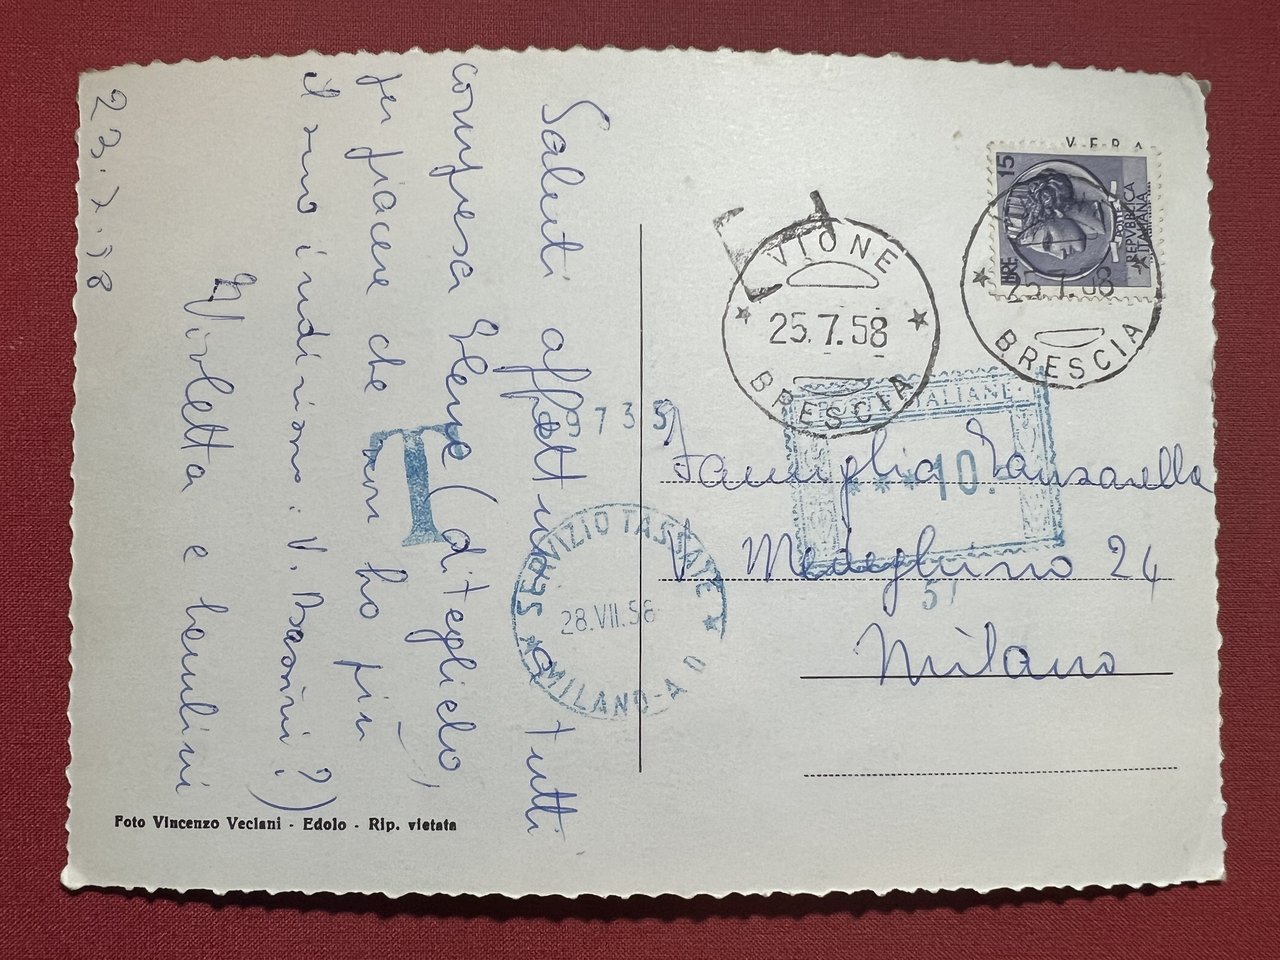 Saluti affettuosi a tutti
compresa Elena (diteglielo,
per piacere che non ho più
il suo indirizzo: V. Bassini?)
Violetta e bambini
23.7.58
Foto Vincenzo Veclani - Edolo - Rip. vietata
VERA
LIRE 15
POSTE
REPVBBLICA
ITALIANA
25.7.58
BRESCIA
T
VIONE
25.7.58
BRESCIA
POSTE ITALIANE
***10.
51
735
T
SERVIZIO TASSATE
28.VII.58
MILANO-A D
Famiglia
V. Medeghino 24
Milano